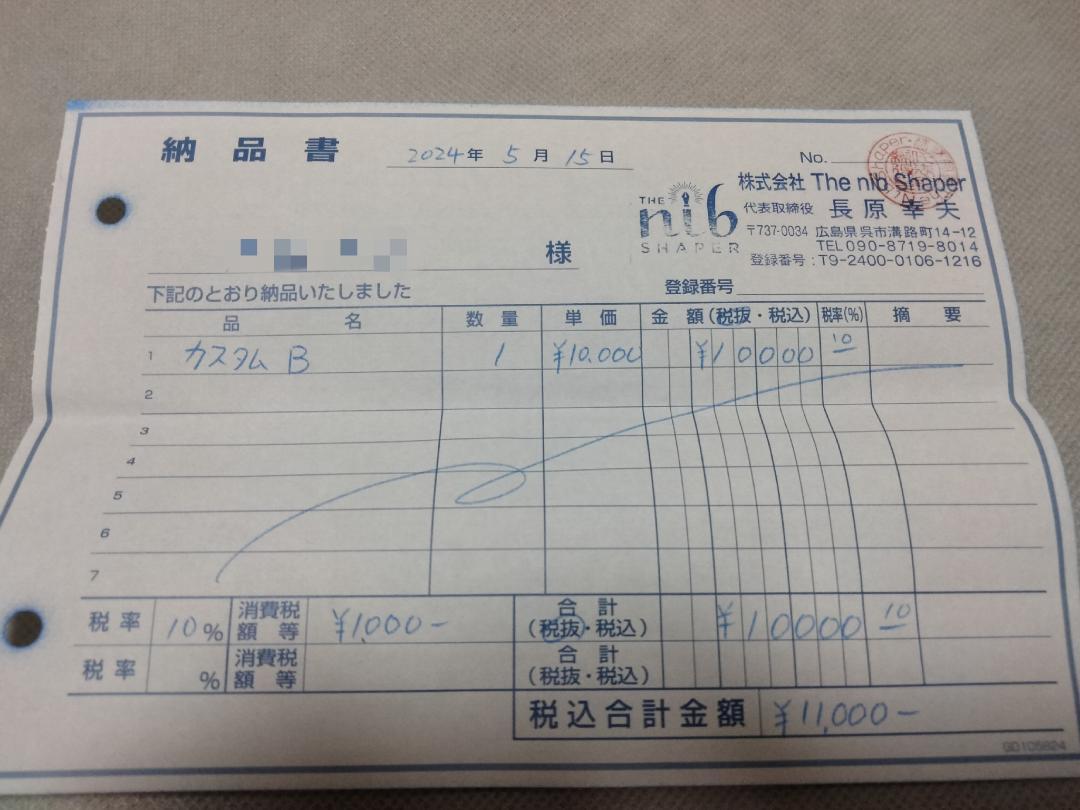 納品書 2024年 5月 15日
No.
THE nib SHAPER
株式会社 The nib Shaper
代表取締役 長原幸夫
〒737-0034 広島県呉市溝路町14-12
TEL 090-8719-8014
登録番号:T9-2400-0106-1216
様
下記のとおり納品いたしました
登録番号
品名 数量 単価 金額(税抜・税込) 税率(%) 摘要
1 カスタム B 1 ¥10,000 ¥10000 10
2
3
4
5
6
7
税率 10% 消費税額等 ¥1,000- 合計(税抜・税込) ¥10000 10
税率 % 消費税額等 合計(税抜・税込)
税込合計金額 ¥11,000-
GD105824